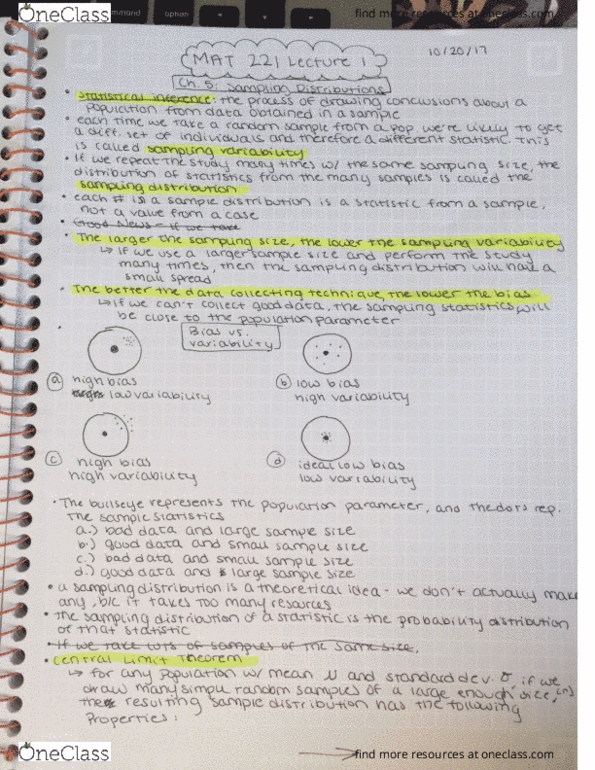 OneClass
command
option
find more resources at oneclass.com
10/20/17
MAT 221 Lecture 1
Ch. 5: Sampling Distributions
• Statistical inference: the process of drawing conclusions about a
population from data obtained in a sample
• each time we take a random sample from a pop. we're likely to get
a diff. set of individuals and therefore a different statistic. This
is called sampling variability
• If we repeat the study many times w/ the same sampling size, the
distribution of statistics from the many samples is called the
sampling distribution
• each # is a sample distribution is a statistic from a sample,
not a value from a case
• Good News - if we take
• The larger the sampling size, the lower the sampling variability
↳ If we use a larger sample size and perform the study
many times, then the sampling distribution will have a
small spread
• The better the data collecting technique, the lower the bias
↳ If we can't collect good data, the sampling statistics will
be close to the population parameter
• Bias vs.
variability
a high bias
low variability
b low bias
high variability
c high bias
high variability
d ideal low bias
low variability
• The bullseye represents the population parameter, and the dots rep.
the sample statistics
a.) bad data and large sample size
b.) good data and small sample size
c.) bad data and small sample size
d.) good data and large sample size
• a sampling distribution is a theoretical idea - we don't actually make
any, b/c it takes too many resources
• the sampling distribution of a statistic is the probability distribution
of that statistic
• If we take lots of samples of the same size,
• Central Limit Theorem
↳ for any population w/ mean μ and standard dev. σ if we
draw many simple random samples of a large enough size, (n)
the resulting sample distribution has the following
properties:
OneClass
find more resources at oneclass.com